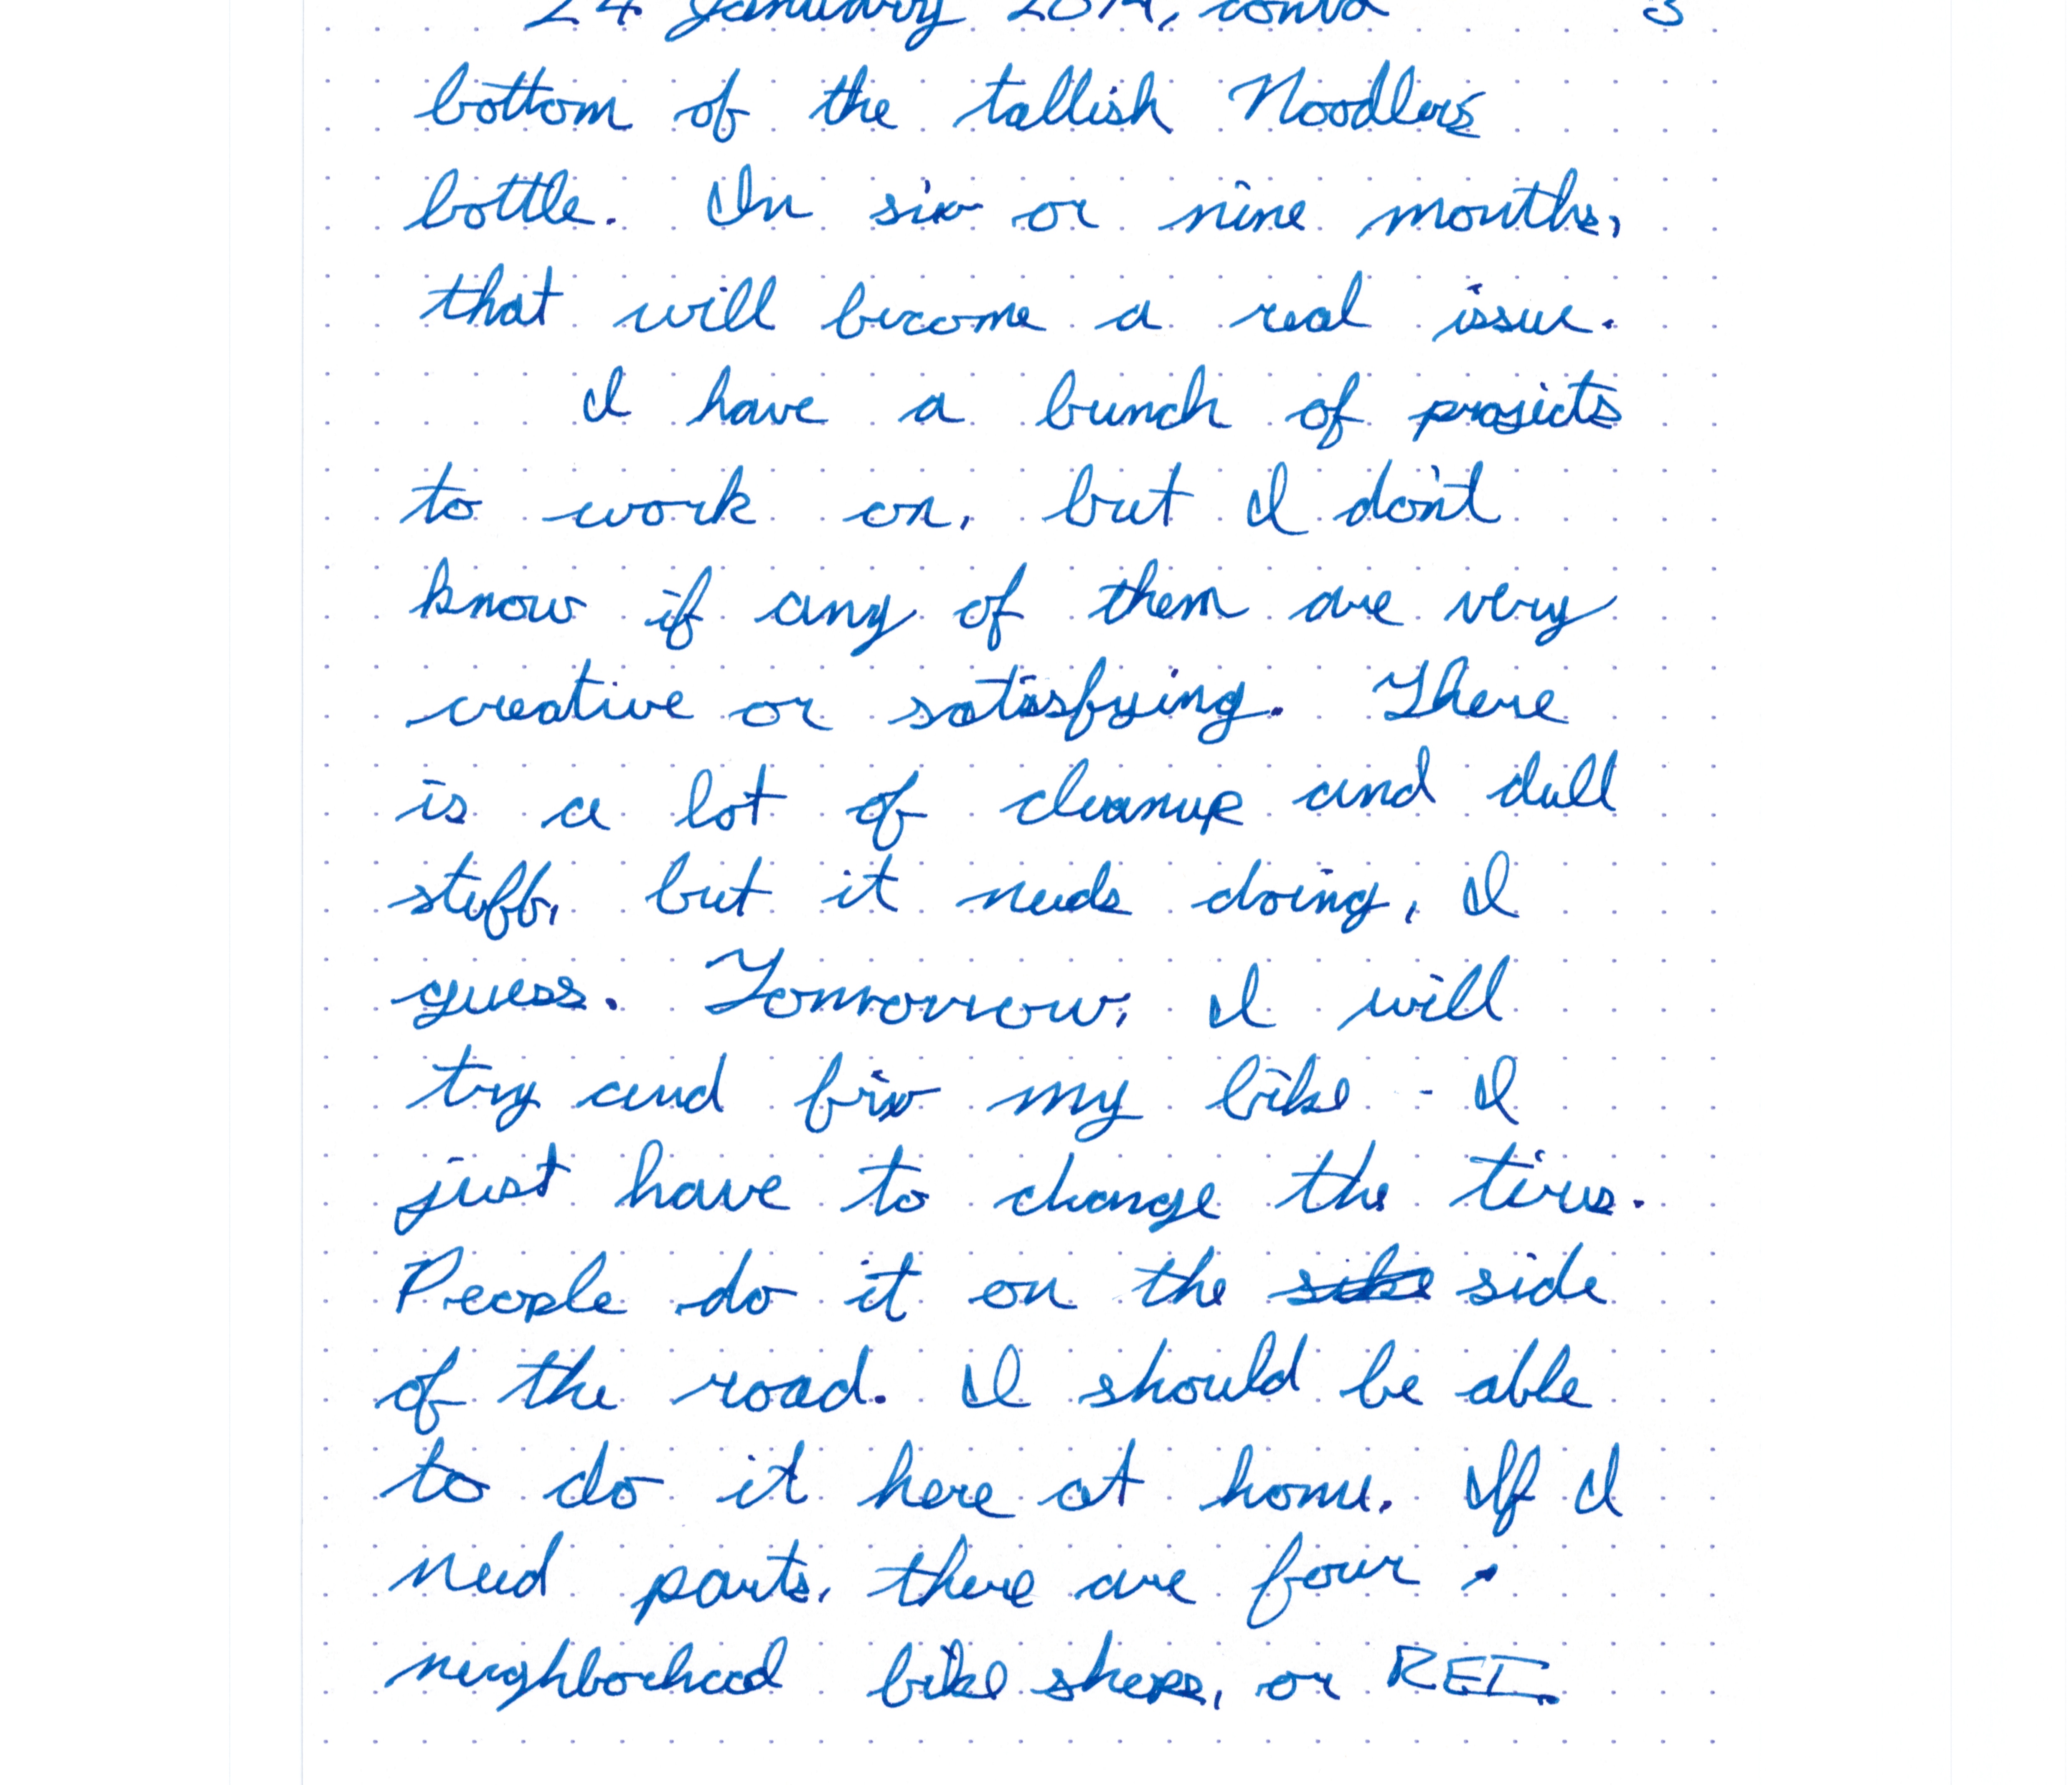 24 January 2014, contd 3
bottom of the tallish Noodlers
bottle. In six or nine months,
that will become a real issue.
I have a bunch of projects
to work on, but I don't
know if any of them are very
creative or satisfying. There
is a lot of cleanup and dull
stuff, but it needs doing, I
guess. Tomorrow, I will
try and fix my bike - I
just have to change the tires.
People do it on the side
of the road. I should be able
to do it here at home. If I
need parts, there are four
neighborhood bike shops, or REI.